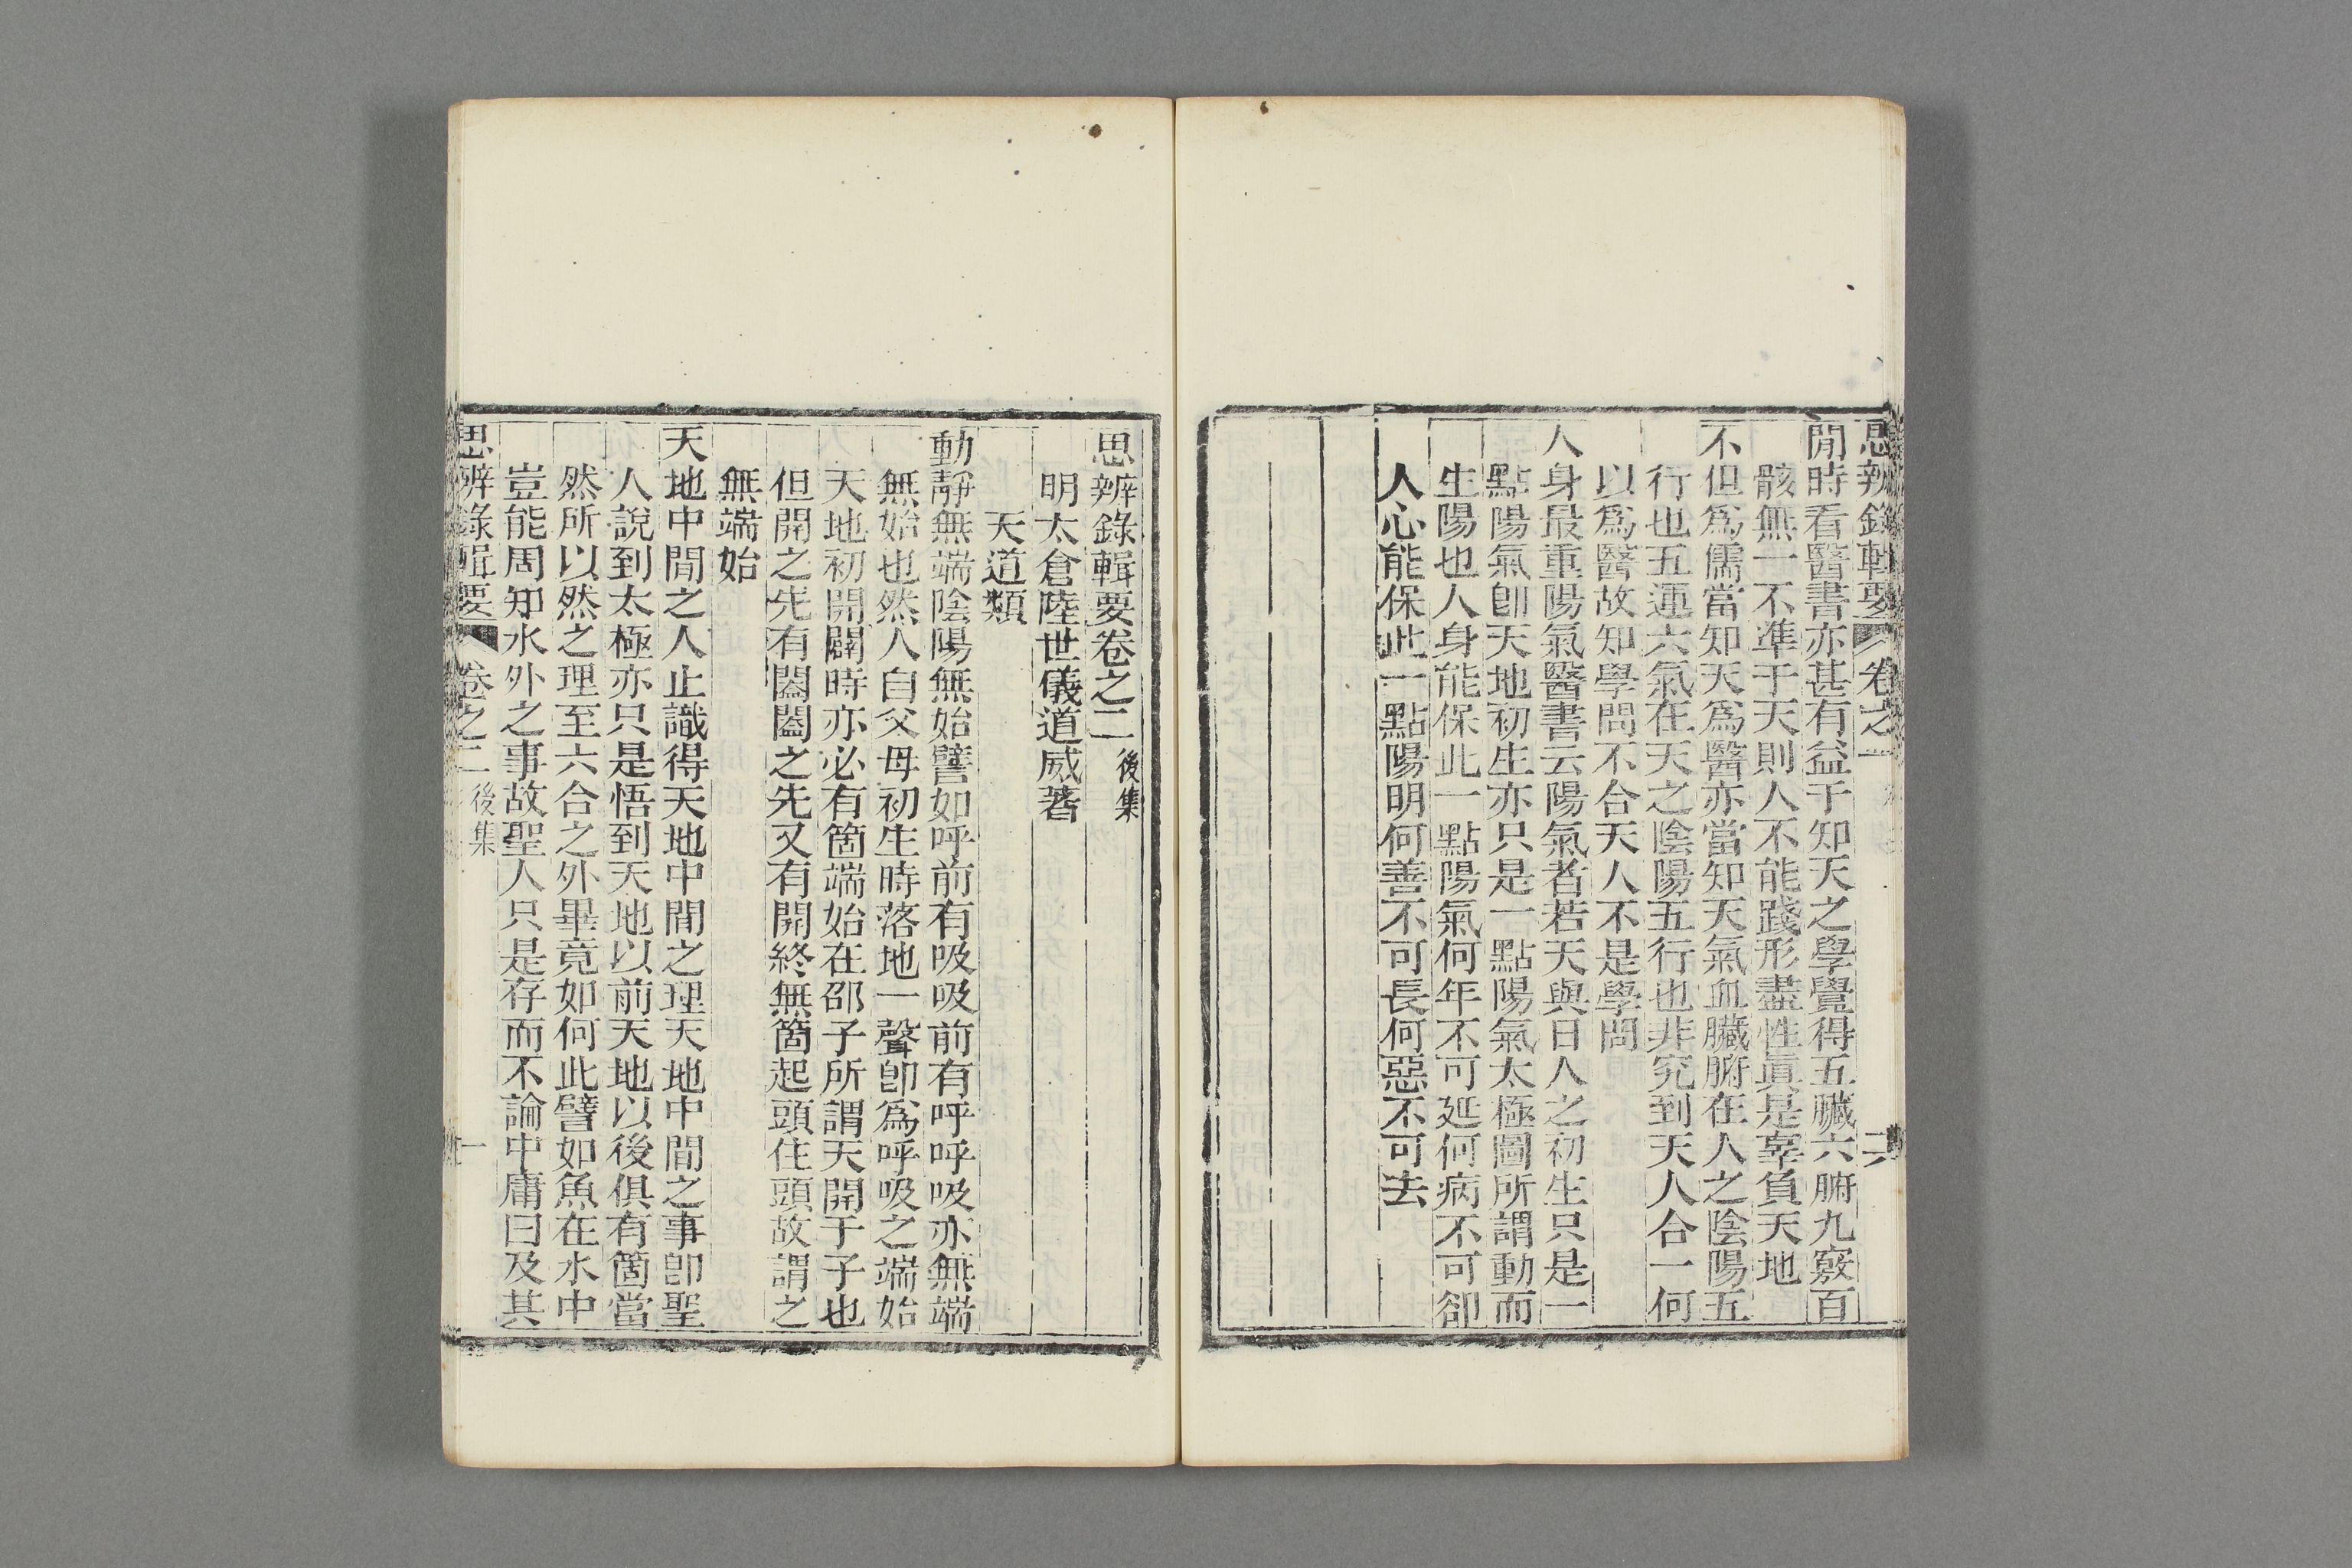 思辨錄輯要 卷之一 六
閒時看醫書亦甚有益于知天之學覺得五臟六腑九竅百
骸無一不凖于天則人不能踐形盡性眞是辜負天地
不但爲儒當知天爲醫亦當知天氣血臟腑在人之陰陽五
行也五運六氣在天之陰陽五行也非究到天人合一何
以爲醫故知學問不合天人不是學問
人身最重陽氣醫書云陽氣者若天與日人之初生只是一
點陽氣卽天地初生亦只是一點陽氣太極圖所謂動而
生陽也人身能保此一點陽氣何年不可延何病不可卻
人心能保此一點陽明何善不可長何惡不可去
思辨錄輯要卷之二 後集
明太倉陸世儀道威著
天道類
動靜無端陰陽無始譬如呼前有吸吸前有呼呼吸亦無端
無始也然人自父母初生時落地一聲卽爲呼吸之端始
天地初開闢時亦必有箇端始在邵子所謂天開于子也
但開之先有闔闔之先又有開終無箇起頭住頭故謂之
無端始
天地中閒之人止識得天地中閒之理天地中閒之事卽聖
人說到太極亦只是悟到天地以前天地以後俱有箇當
然所以然之理至六合之外畢竟如何此譬如魚在水中
豈能周知水外之事故聖人只是存而不論中庸曰及其
思辨錄輯要 卷之二 後集 一